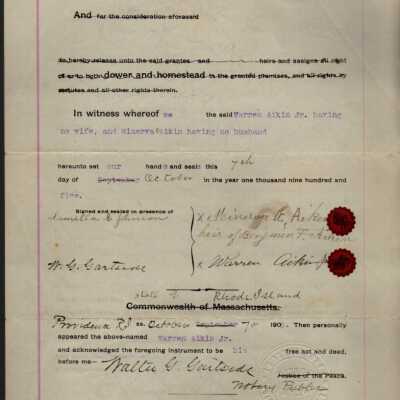 And for the consideration aforesaid
do hereby release unto the said grantee and heirs and assigns all right
of or to both dower and homestead in the granted premises, and all rights by
statutes and all other rights therein.
In witness whereof we the said Warren Aikin Jr. having
no wife, and Minerva Aikin having no husband
hereunto set our hands and seals this 7th
day of September October in the year one thousand nine hundred and
five.
Signed and sealed in presence of
Johnson
x Minerva A. Aiken
heir of Benjamin F. Aiken
W. G. Gartside
x Warren Aikin Jr
State of Rhode Island
Commonwealth of Massachusetts.
Providence R.I ss. October September 7th 190 . Then personally
appeared the above-named Warren Aikin Jr.
and acknowledged the foregoing instrument to be his free act and deed,
before me— Walter G. Gartside
Justice of the Peace.
Notary Public